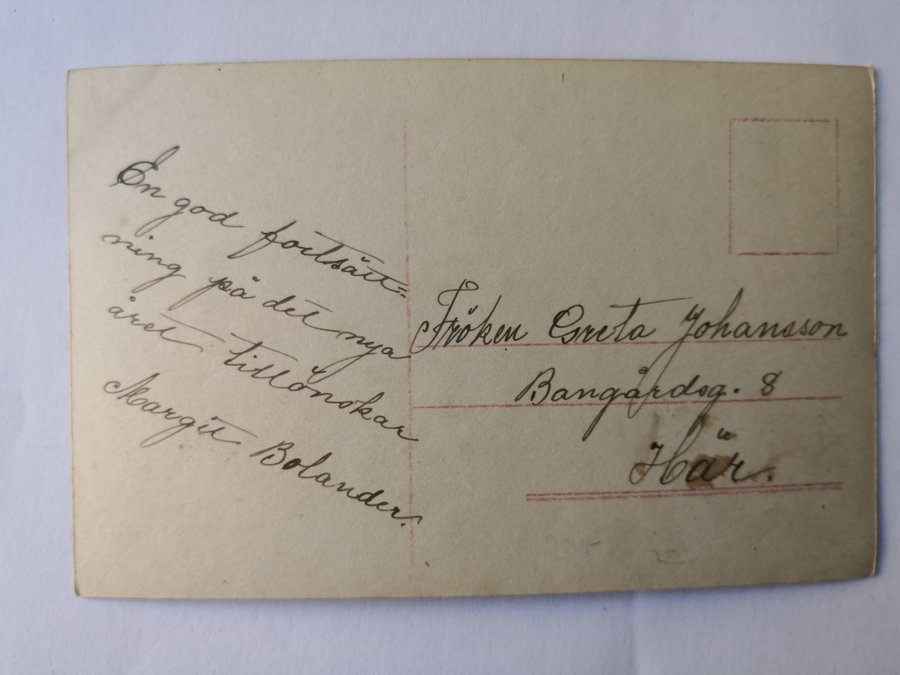 En god fortsätt-
ning på det nya
året tillönskar
Margit Bolander.
Fröken Greta Johansson
Bangårdsg. 8
Här.